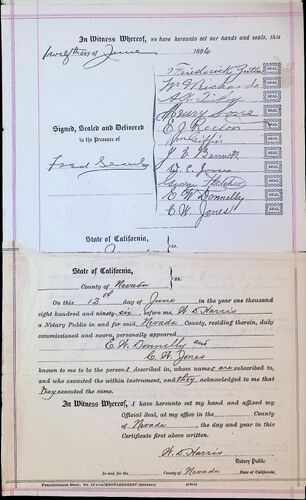 In Witness Whereof, we have hereunto set our hands and seals, this
twelfth day of June 1896
Frederick Zeitler SEAL
W F Richards SEAL
SEAL
Henry SEAL
Signed, Sealed and Delivered
E J Rector SEAL
in the Presence of
Griffin SEAL
Fred Searls
J E Bennett SEAL
D. C. Jones SEAL
George Fletcher SEAL
E W Donnelly SEAL
C W Jones SEAL
State of California, ss.
State of California,
County of Nevada ss.
On this 12th day of June in the year one thousand
eight hundred and ninety-six before me, W. D. Harris
a Notary Public in and for said Nevada County, residing therein, duly
commissioned and sworn, personally appeared
E. W. Donnelly and
C. W. Jones
known to me to be the persons described in, whose names are subscribed to,
and who executed the within instrument, and they acknowledged to me that
they executed the same.
In Witness Whereof, I have hereunto set my hand and affixed my
Official Seal, at my office in the County
of Nevada, the day and year in this
Certificate first above written.
W. D. Harris
Notary Public
In and for the County of Nevada